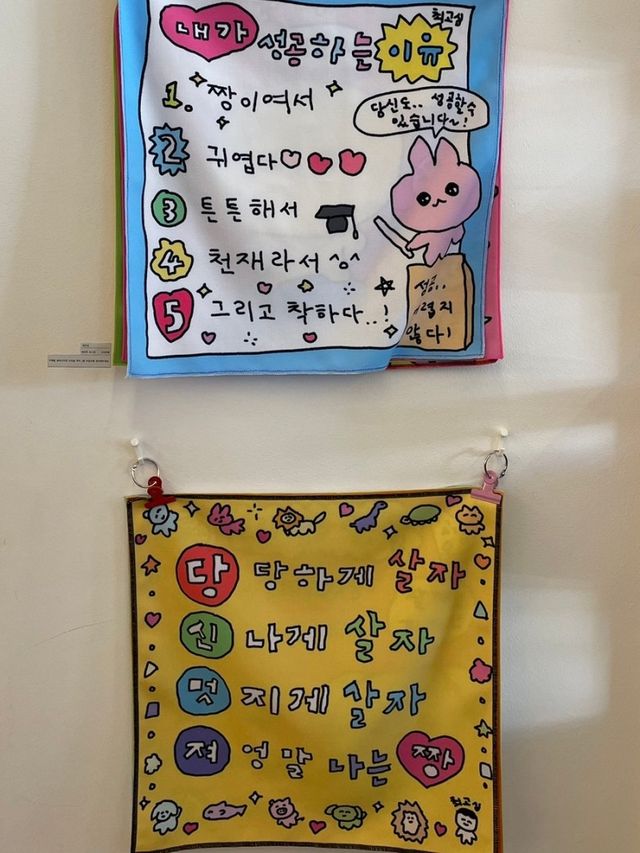 내가 성공하는 이유
최고심
1. 짱이여서
당신도.. 성공할 수
있습니다~!
2 귀엽다
3 튼튼해서
4 천재라서 ^o^
5 그리고 착하다..!
성공..
렵지
않다!
당 당하게 살자
신 나게 살자
멋 지게 살자
져 엉말 나는 짱
최고심